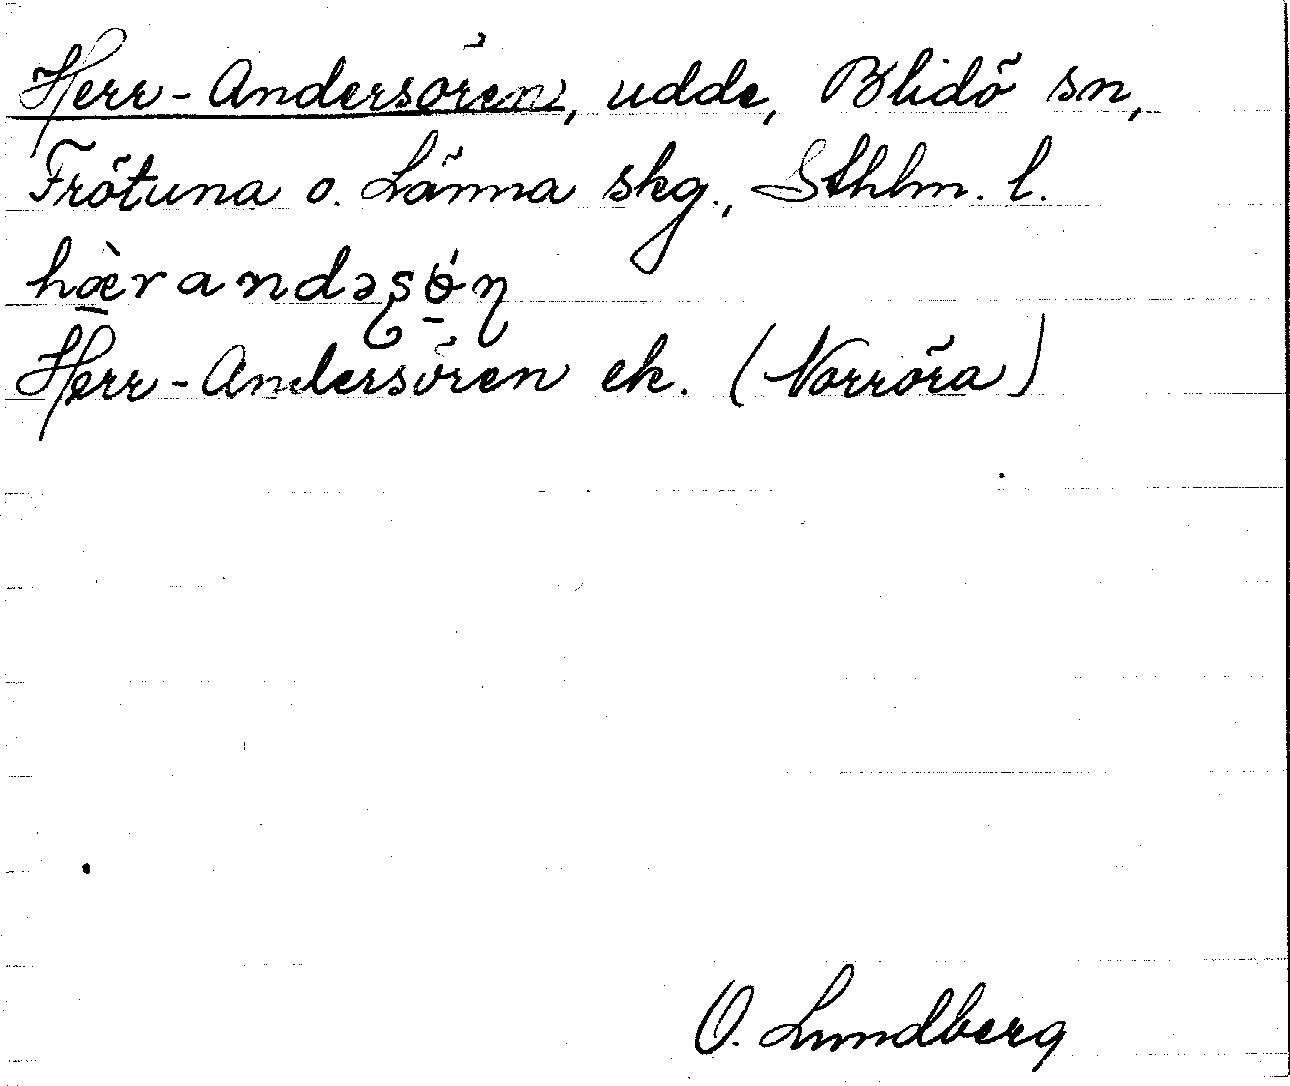 Herr-Andersören, udde, Blidö sn,
Frötuna o. Länna skg., Sthlm. l.
hæ̀randəʂɵ́ɳ
Herr-Andersören ek. (Norröra)
O. Lundberg